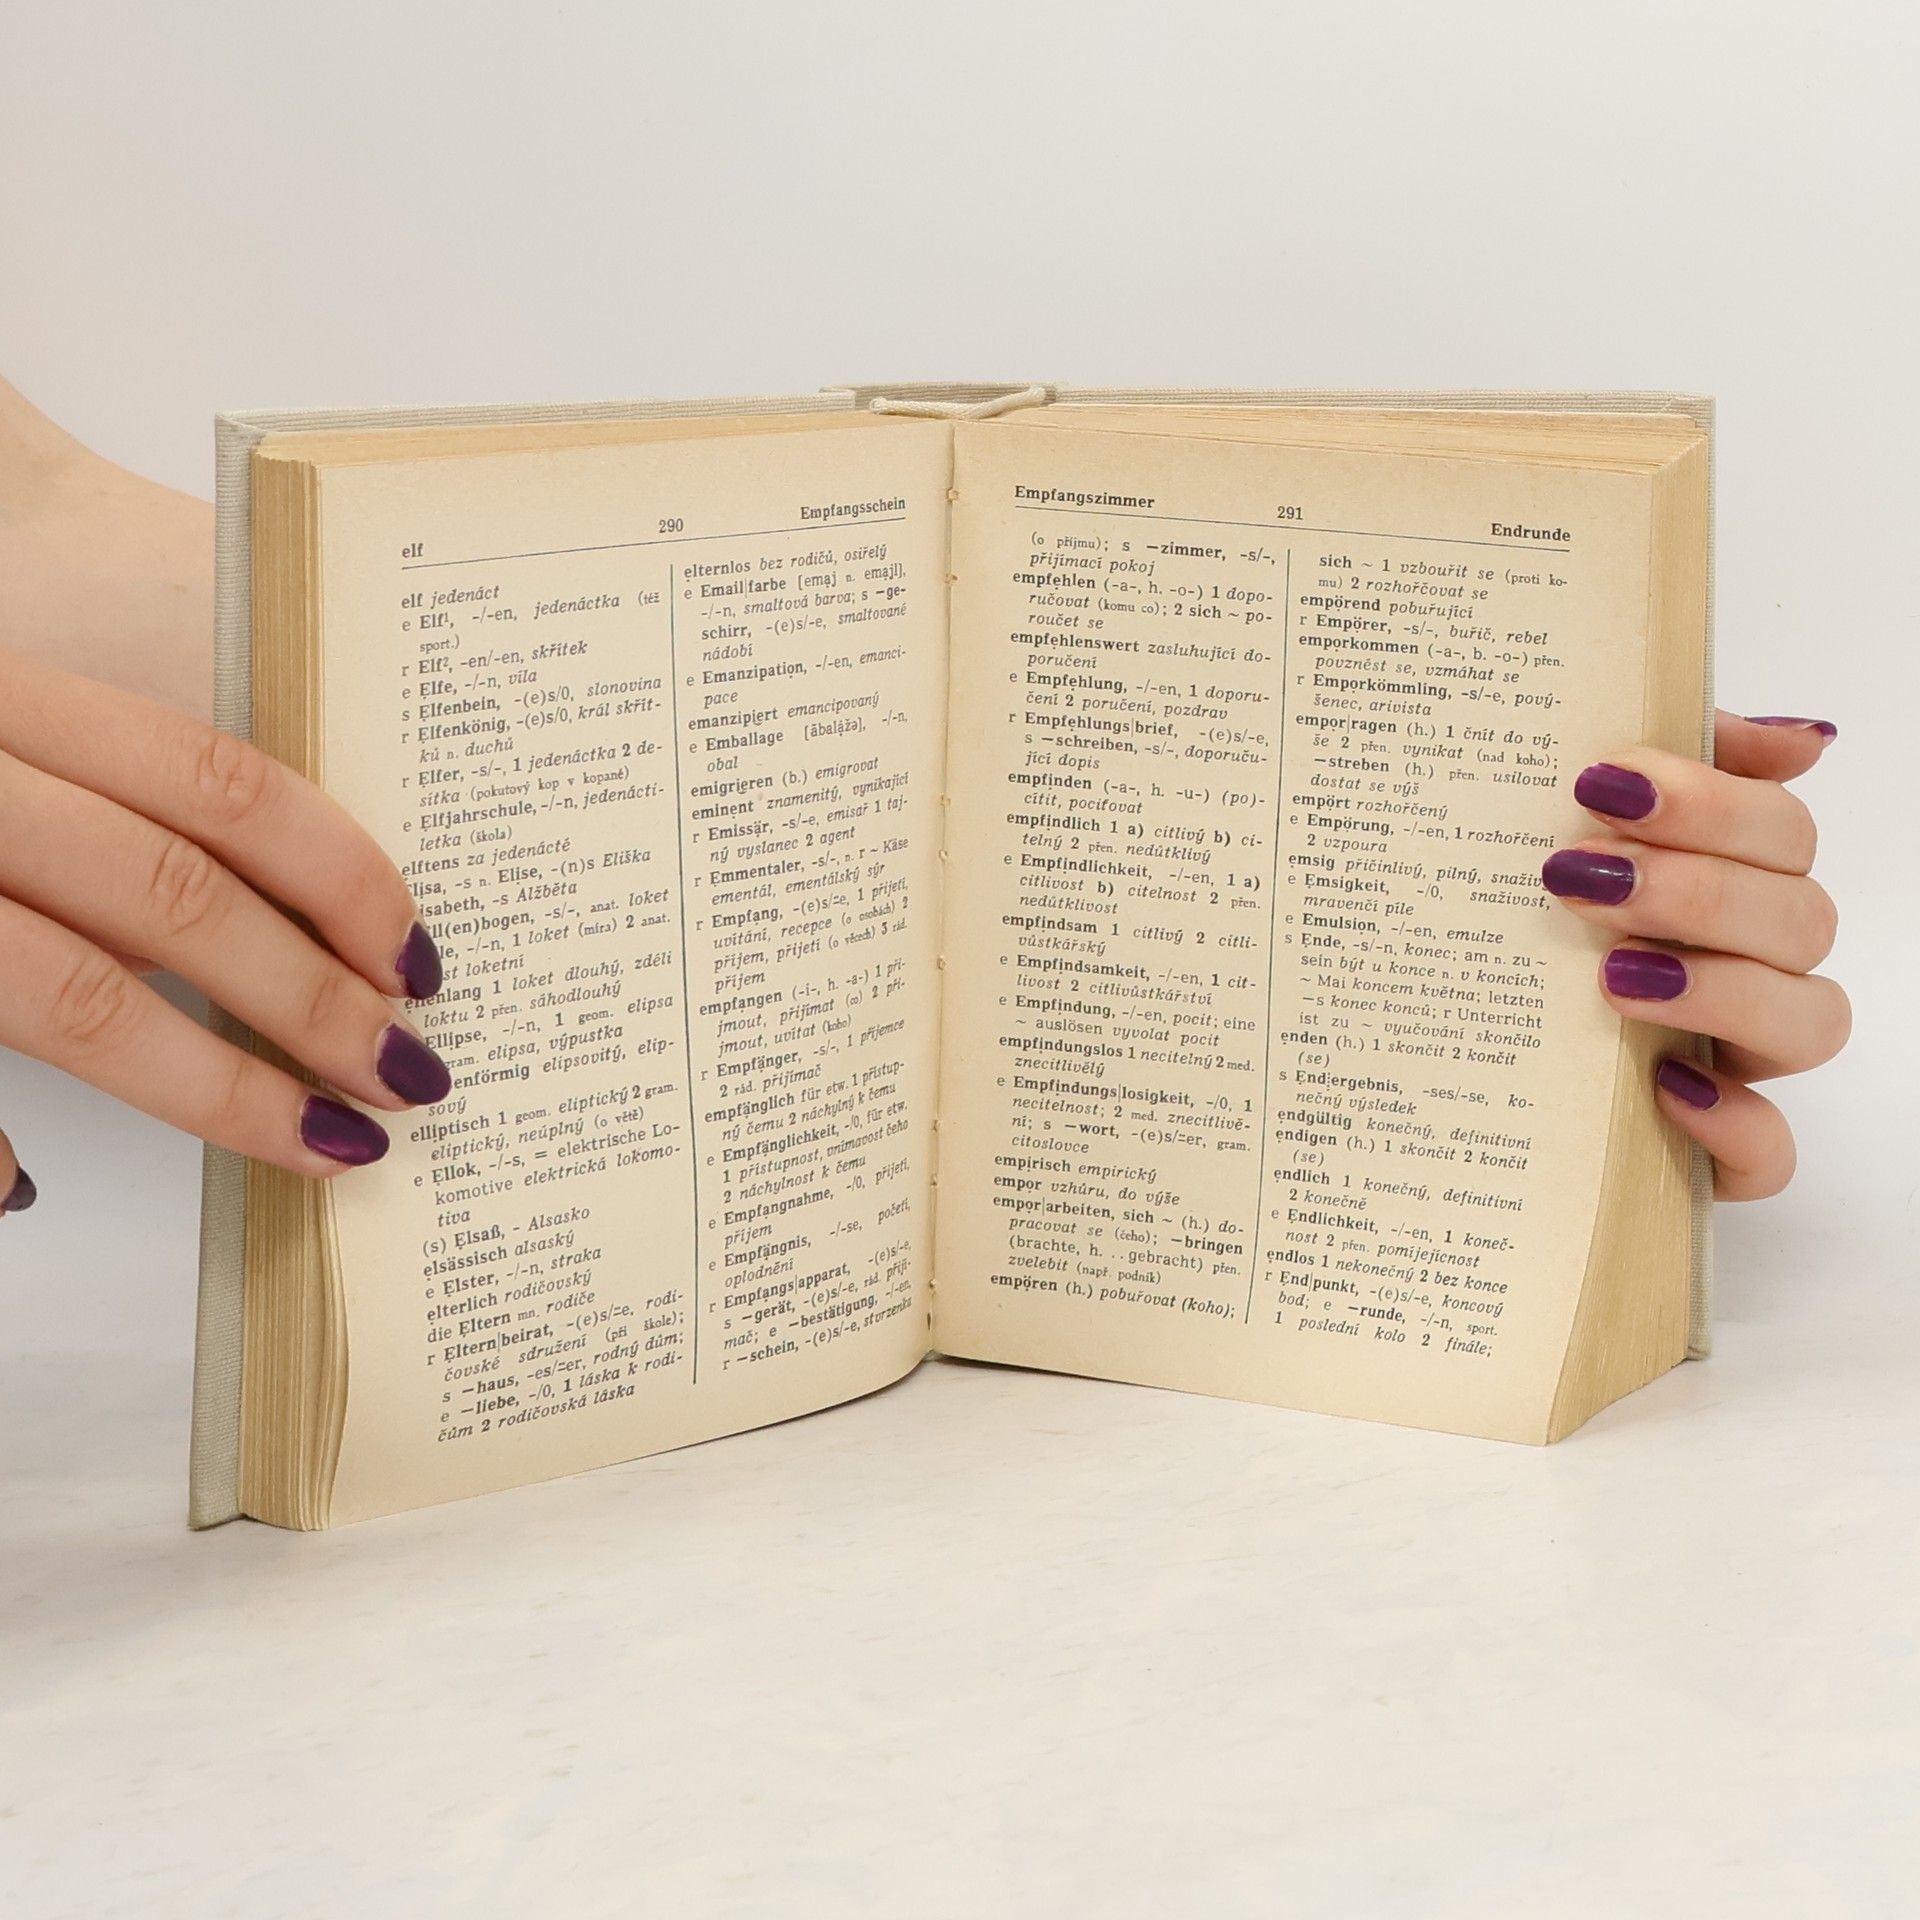 elf
290
Empfangsschein
elf jedenáct
e Elf¹, -/-en, jedenáctka (též
sport.)
r Elf², -en/-en, skřítek
e Elfe, -/-n, víla
s Elfenbein, -(e)s/0, slonovina
r Elfenkönig, -(e)s/0, král skřít-
ků n. duchů
r Elfer, -s/-, 1 jedenáctka 2 de-
sítka (pokutový kop v kopané)
e Elfjahrschule, -/-n, jedenácti-
letka (škola)
elftens za jedenácté
-s n. Elise, -(n)s Eliška
-s Alžběta
-s/-, anat. loket
-/-n, 1 loket (míra) 2 anat.
loketní
1 loket dlouhý, zdéli
loktu 2 přen. sáhodlouhý
Ellipse, -/-n, 1 geom. elipsa
gram. elipsa, výpustka
elipsovitý, elip-
sový
elliptisch 1 geom. eliptický 2 gram.
eliptický, neúplný (o větě)
e Ellok, -/-s, = elektrische Lo-
komotive elektrická lokomo-
tiva
(s) Elsaß, - Alsasko
elsässisch alsaský
e Elster, -/-n, straka
elterlich rodičovský
die Eltern mn. rodiče
r Eltern|beirat, -(e)s/⸚e, rodi-
čovské sdružení (při škole);
s —haus, -es/⸚er, rodný dům;
e —liebe, -/0, 1 láska k rodi-
čům 2 rodičovská láska
elternlos bez rodičů, osiřelý
e Email|farbe [emaj n. emajl],
-/-n, smaltová barva; s —ge-
schirr, -(e)s/-e, smaltované
nádobí
e Emanzipation, -/-en, emanci-
pace
emanzipiert emancipovaný
e Emballage [ãbalážə], -/-n,
obal
emigrieren (b.) emigrovat
eminent znamenitý, vynikající
r Emissär, -s/-e, emisař 1 taj-
ný vyslanec 2 agent
r Emmentaler, -s/-, n. r ~ Käse
ementál, ementálský sýr
r Empfang, -(e)s/⸚e, 1 přijetí,
uvítání, recepce (o osobách) 2
příjem, přijetí (o věcech) 3 rád.
příjem
empfangen (-i-, h. -a-) 1 při-
jmout, přijímat (co) 2 při-
jmout, uvítat (koho)
r Empfänger, -s/-, 1 příjemce
2 rád. přijímač
empfänglich für etw. 1 přístup-
ný čemu 2 náchylný k čemu
e Empfänglichkeit, -/0, für etw.
1 přístupnost, vnímavost čeho
2 náchylnost k čemu
e Empfangnahme, -/0, přijetí,
příjem
e Empfängnis, -/-se, početí,
oplodnění
r Empfangs|apparat, -(e)s/-e,
s —gerät, -(e)s/-e, rád. přijí-
mač; e —bestätigung, -/-en,
r —schein, -(e)s/-e, stvrzenka
Empfangszimmer
291
Endrunde
(o příjmu); s —zimmer, -s/-,
přijímací pokoj
empfehlen (-a-, h. -o-) 1 dopo-
ručovat (komu co); 2 sich ~ po-
roučet se
empfehlenswert zasluhující do-
poručení
e Empfehlung, -/-en, 1 doporu-
čení 2 poručení, pozdrav
r Empfehlungs|brief, -(e)s/-e,
s —schreiben, -s/-, doporuču-
jící dopis
empfinden (-a-, h. -u-) (po)-
cítit, pociťovat
empfindlich 1 a) citlivý b) ci-
telný 2 přen. nedůtklivý
e Empfindlichkeit, -/-en, 1 a)
citlivost b) citelnost 2 přen.
nedůtklivost
empfindsam 1 citlivý 2 citli-
vůstkářský
e Empfindsamkeit, -/-en, 1 cit-
livost 2 citlivůstkářství
e Empfindung, -/-en, pocit; eine
~ auslösen vyvolat pocit
empfindungslos 1 necitelný 2 med.
znecitlivělý
e Empfindungs|losigkeit, -/0, 1
necitelnost; 2 med. znecitlivě-
ní; s —wort, -(e)s/⸚er, gram.
citoslovce
empirisch empirický
empor vzhůru, do výše
empor|arbeiten, sich ~ (h.) do-
pracovat se (čeho); —bringen
(brachte, h. ..gebracht) přen.
zvelebit (např. podnik)
empören (h.) pobuřovat (koho);
sich ~ 1 vzbouřit se (proti ko-
mu) 2 rozhořčovat se
empörend pobuřující
r Empörer, -s/-, buřič, rebel
emporkommen (-a-, b. -o-) přen.
povznést se, vzmáhat se
r Emporkömmling, -s/-e, pový-
šenec, arivista
empor|ragen (h.) 1 čnít do vý-
še 2 přen. vynikat (nad koho);
—streben (h.) přen. usilovat
dostat se výš
empört rozhořčený
e Empörung, -/-en, 1 rozhořčení
2 vzpoura
emsig přičinlivý, pilný,
e Emsigkeit, -/0, snaživost,
mravenčí píle
e Emulsion, -/-en, emulze
s Ende, -s/-n, konec; am n. zu ~
sein být u konce n. v koncích;
~ Mai koncem května; letzten
—s konec konců; r Unterricht
ist zu ~ vyučování skončilo
enden (h.) 1 skončit 2 končit
(se)
s End|ergebnis, -ses/-se, ko-
nečný výsledek
endgültig konečný, definitivní
endigen (h.) 1 skončit 2 končit
(se)
endlich 1 konečný, definitivní
2 konečně
e Endlichkeit, -/-en, 1 koneč-
nost 2 přen. pomíjejícnost
endlos 1 nekonečný 2 bez konce
r End|punkt, -(e)s/-e, koncový
bod; e —runde, -/-n, sport.
1 poslední kolo 2 finále;